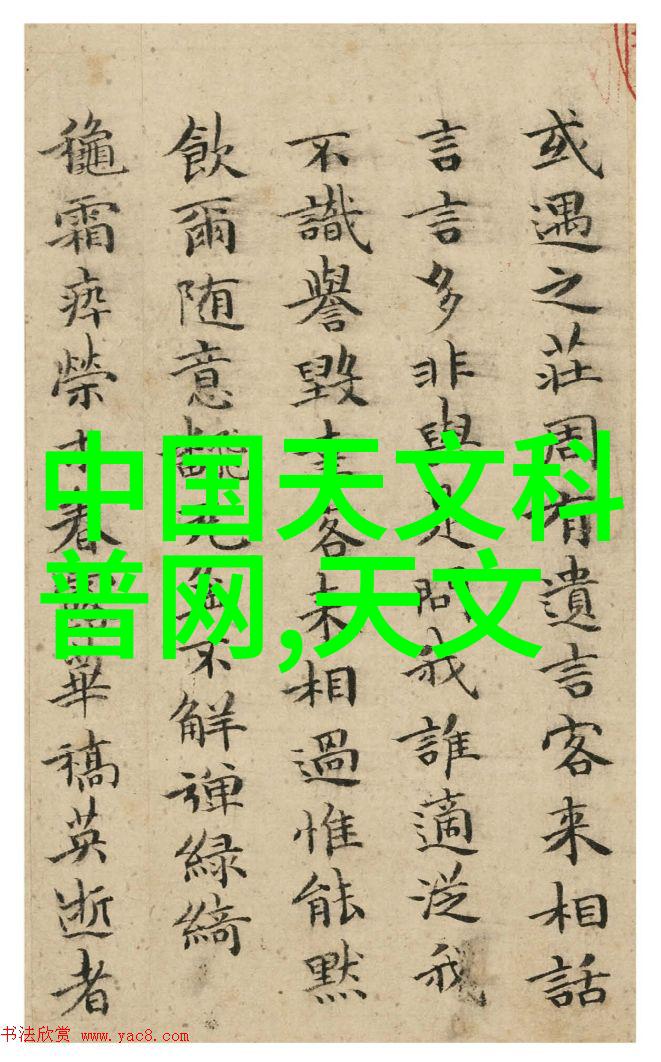 或遇之莊周有遺言客来相話
言言多非與是問我誰適従我
不識譽毀客未相過惟能默
飲爾随意无不解弹緑綺
龝霜瘁榮春華稿英逝者
中国天文科
普网,天文
书法欣赏 www.yac8.com